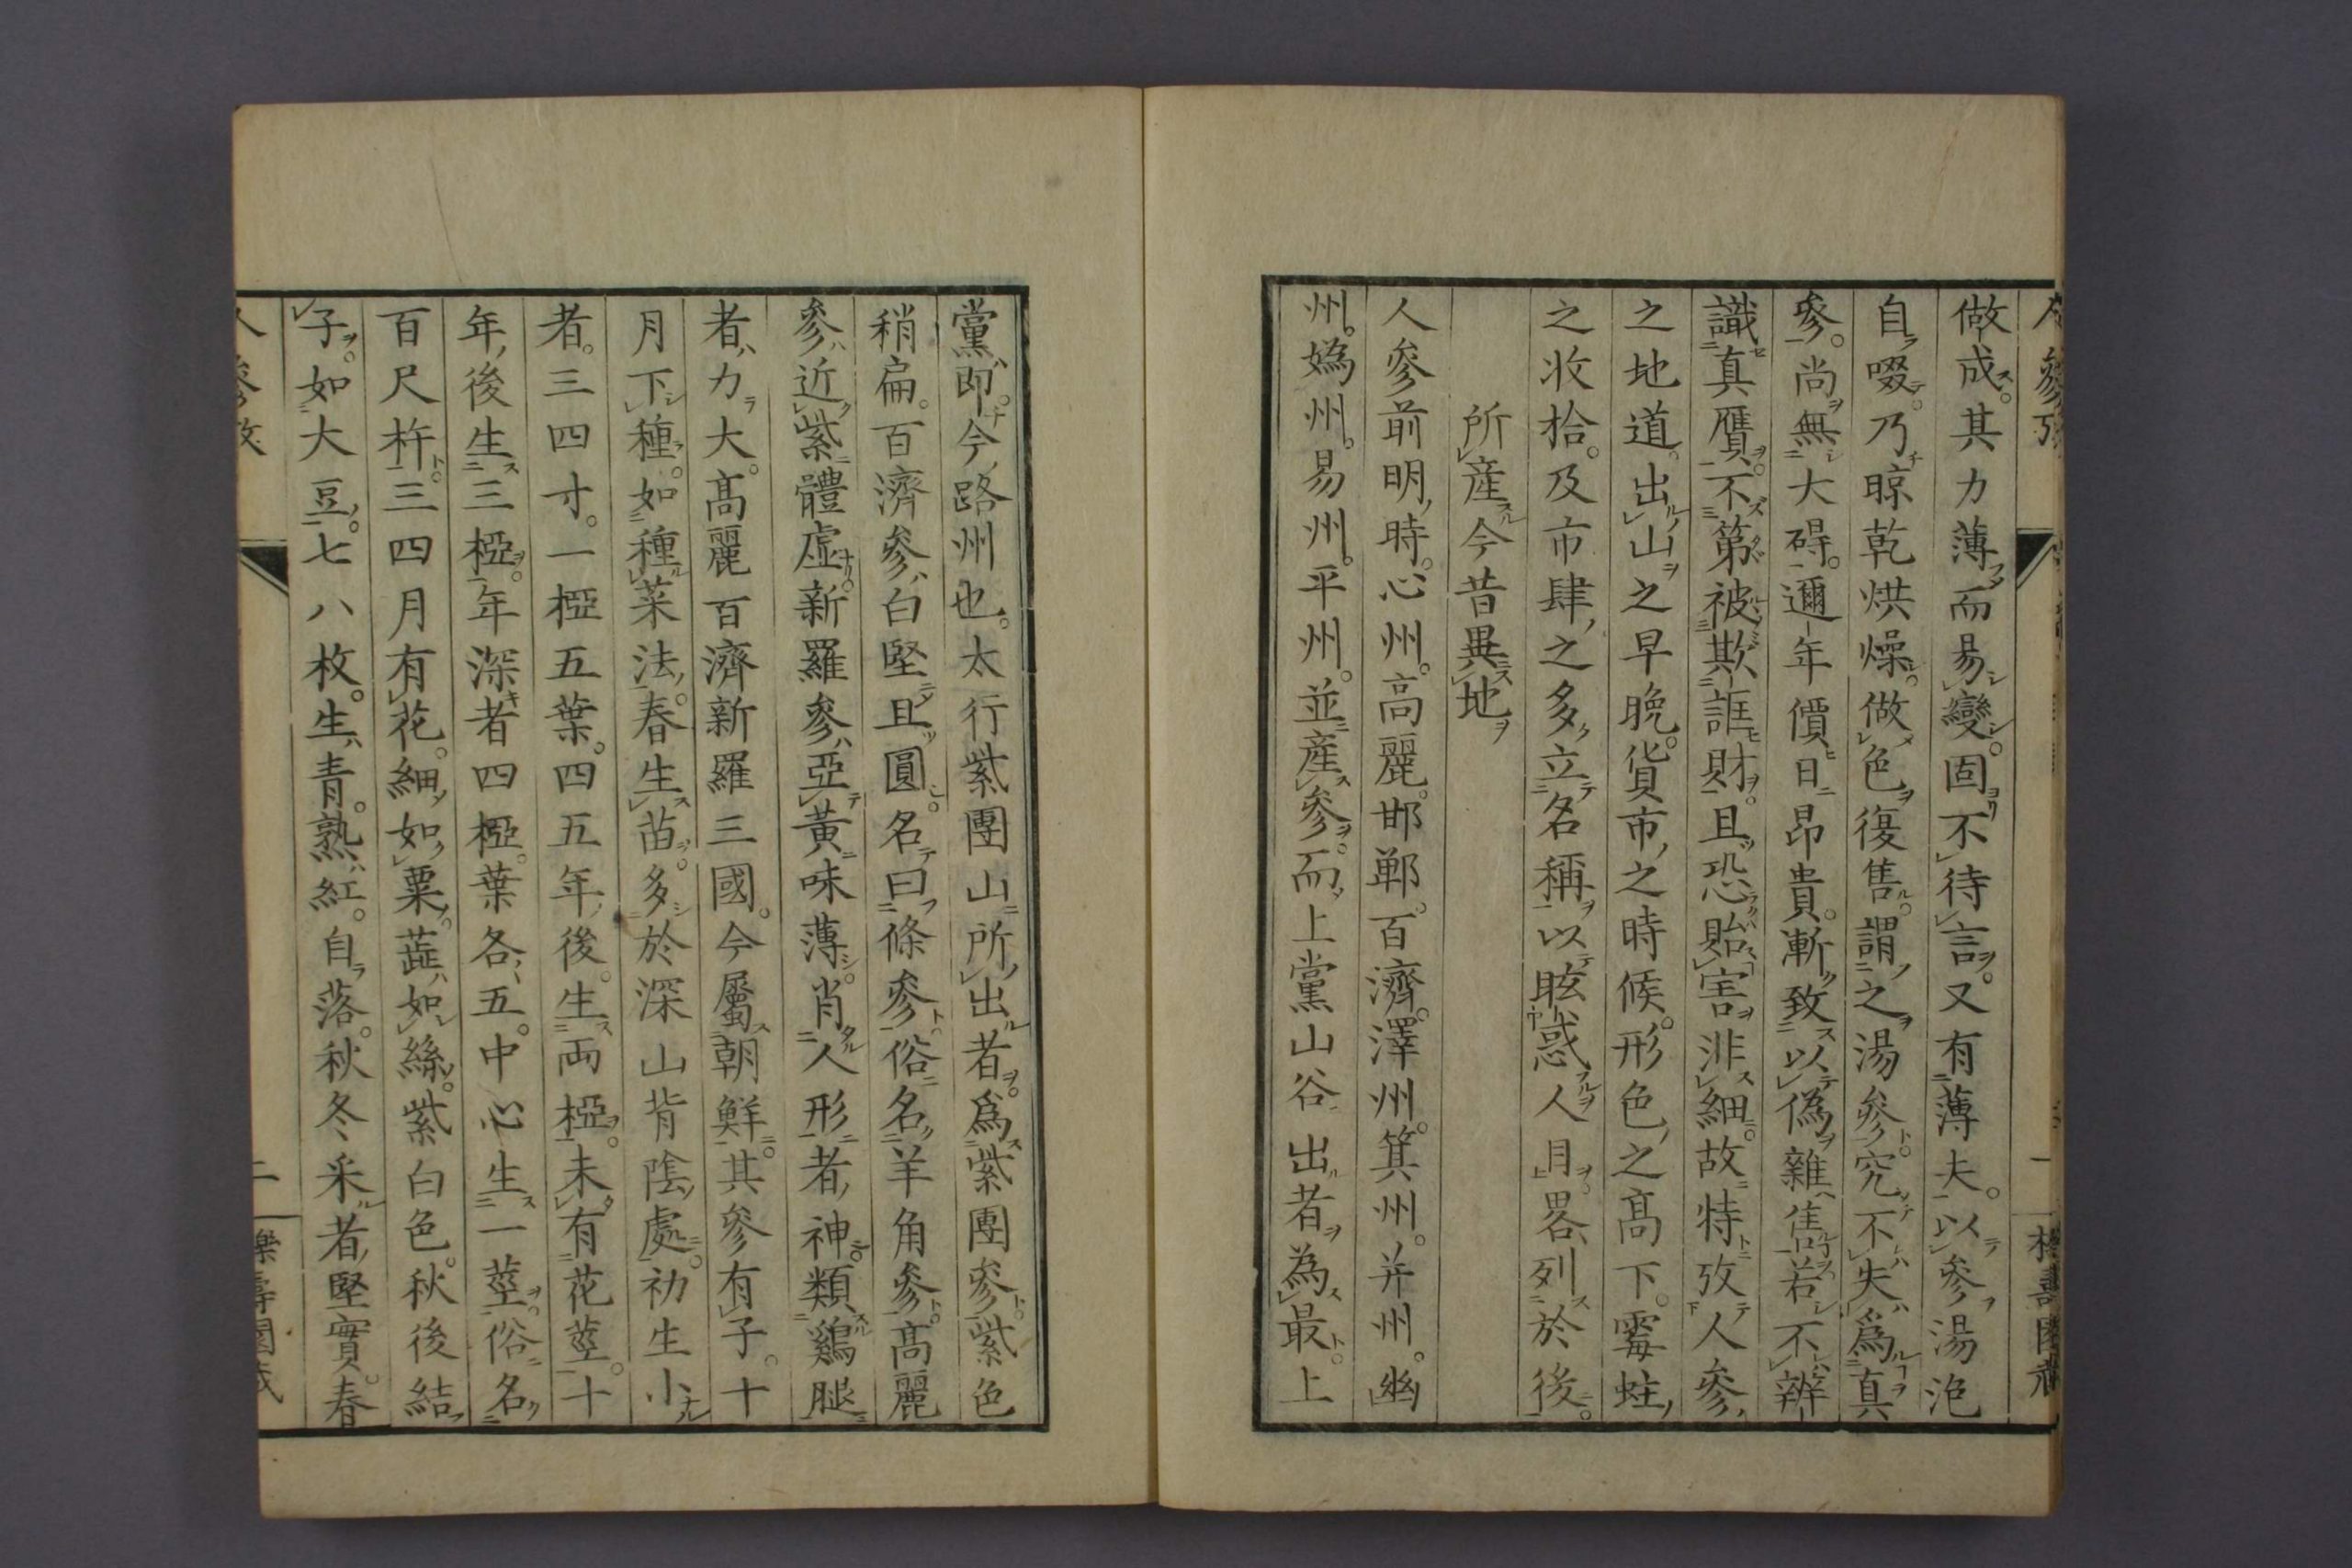 做成。其力薄而易變。固不待言。又有薄夫。以參湯泡
自啜。乃晾乾烘燥。做色復售。謂之湯參。究不失爲真
參。尚無大碍。邇年價日昂貴。漸致以偽雜售。若不辨
識真贋。不第被欺誆財。且恐貽害非細。故特攷人參
之地道。出山之早晚。貨市之時候。形色之高下。霉蛀
之收拾。及市肆之多立名稱。以眩惑人目。畧列於後。
所產今昔異地
人參前明時。心州。高麗。邯鄲。百濟。澤州。箕州。并州。幽
州。嬀州。易州。平州。並產參。而上黨山谷出者為最。上
黨即今路州也。太行紫團山所出者。爲紫團參。紫色
稍扁。百濟參。白堅且圓。名曰條參。俗名羊角參。高麗
參。近紫體虛。新羅參。亞黃味薄。肖人形者神。類鷄腿
者力大。高麗百濟新羅三國。今屬朝鮮。其參有子。十
月下種。如種菜法。春生苗。多於深山背陰處。初生小
者。三四寸。一椏五葉。四五年後。生両椏。未有花莖。十
年後生三椏。年深者四椏。葉各五。中心生一莖。俗名
百尺杵。三四月有花。細如粟。蕋如絲。紫白色。秋後結
子。如大豆。七八枚。生青。熟紅。自落。秋冬采者堅實。春
人參攷
二